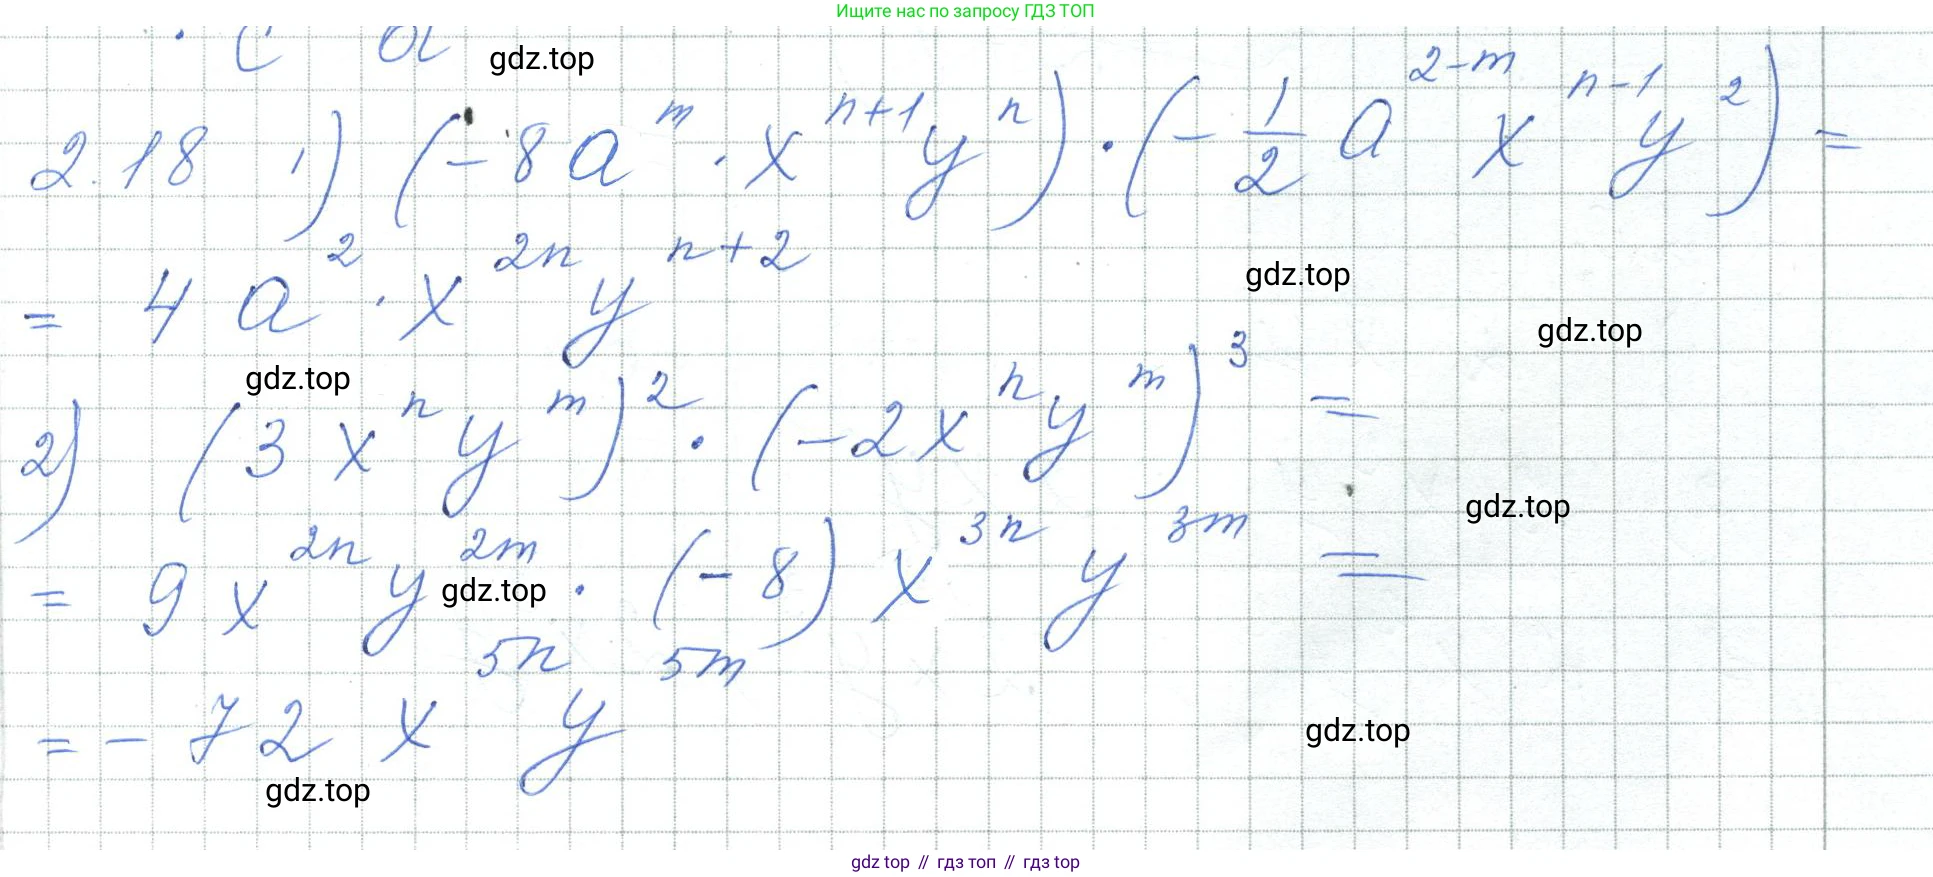 Ищите нас по запросу ГДЗ ТОП
gdz.top
2.18 1) (-8a^m · x^{n+1} y^n) · (-1/2 a^{2-m} x^{n-1} y^2) =
= 4 a^2 · x^{2n} y^{n+2}
gdz.top
gdz.top
gdz.top
2) (3x^n y^m)^2 · (-2x^n y^m)^3 =
gdz.top
= 9x^{2n} y^{2m} · (-8) x^{3n} y^{3m} =
gdz.top
= -72 x^{5n} y^{5m}
gdz.top
gdz.top
gdz top // гдз топ // gdz top